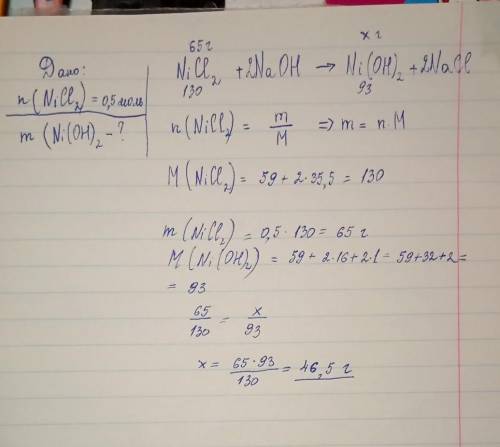 Дано:
n(NiCl₂) = 0,5 моль
m(Ni(OH)₂ - ?
65 г x г
NiCl₂ + 2NaOH → Ni(OH)₂ + 2NaCl
130 93
n(NiCl₂) = m/M => m = n·M
M(NiCl₂) = 59 + 2·35,5 = 130
m(NiCl₂) = 0,5·130 = 65 г
M(Ni(OH)₂) = 59 + 2·16 + 2·1 = 59+32+2 =
= 93
65/130 = x/93
x = 65·93/130 = 46,5 г